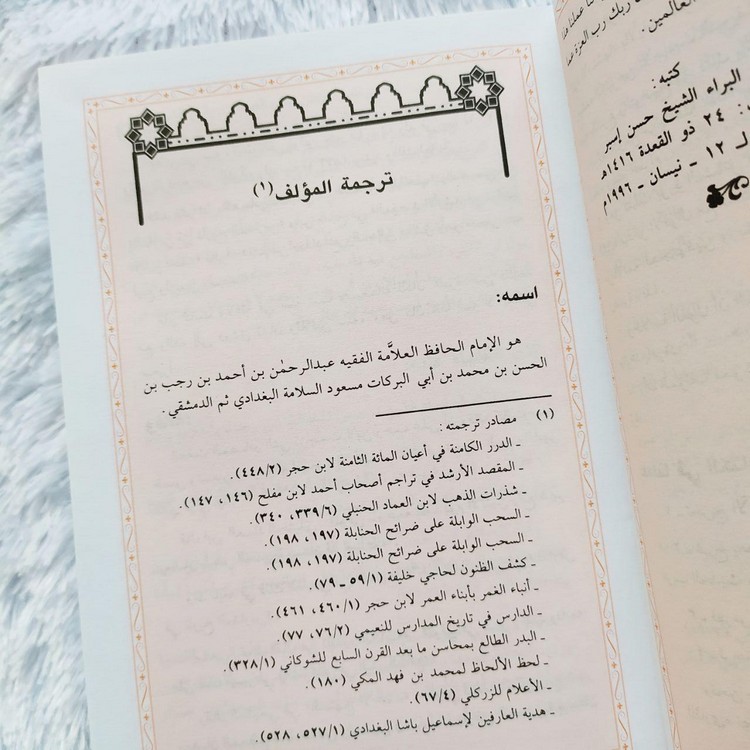 العالمين.
كتبه:
البراء الشيخ حسن إسبر
٢٤ ذو القعدة ١٤١٦هـ
لـ ١٢ - نيسان - ١٩٩٦م
ترجمة المؤلف(١)
اسمه:
هو الإمام الحافظ العلاَّمة الفقيه عبدالرحمٰن بن أحمد بن رجب بن
الحسن بن محمد بن أبي البركات مسعود السلامة البغدادي ثم الدمشقي.
(١) مصادر ترجمته:
ـ الدرر الكامنة في أعيان المائة الثامنة لابن حجر (٤٤٨/٢).
ـ المقصد الأرشد في تراجم أصحاب أحمد لابن مفلح (١٤٦، ١٤٧).
ـ شذرات الذهب لابن العماد الحنبلي (٣٣٩/٦، ٣٤٠).
ـ السحب الوابلة على ضرائح الحنابلة (١٩٧، ١٩٨).
ـ السحب الوابلة على ضرائح الحنابلة (١٩٧، ١٩٨).
ـ كشف الظنون لحاجي خليفة (٥٩/١ ـ ٧٩).
ـ أنباء الغمر بأبناء العمر لابن حجر (٤٦٠/١، ٤٦١).
ـ الدارس في تاريخ المدارس للنعيمي (٧٦/٢، ٧٧).
ـ البدر الطالع بمحاسن ما بعد القرن السابع للشوكاني (٣٢٨/١).
ـ لحظ الألحاظ لمحمد بن فهد المكي (١٨٠).
ـ الأعلام للزركلي (٦٧/٤).
ـ هدية العارفين لإسماعيل باشا البغدادي (٥٢٧/١، ٥٢٨).